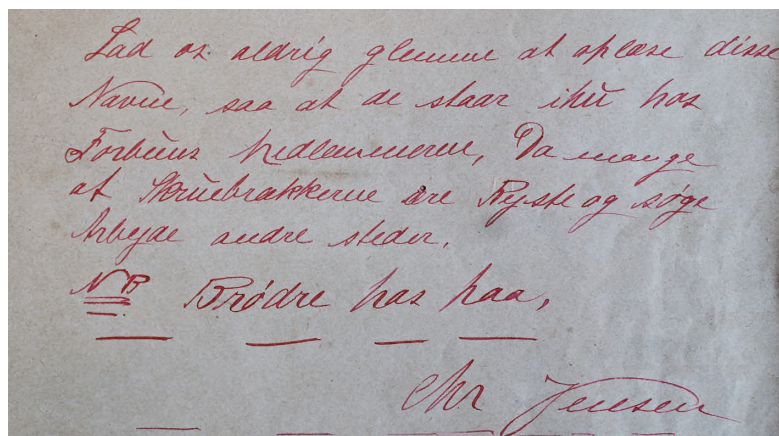 Lad os aldrig glemme at oplæse disse
Navne, saa at de staar ihu hos
Forbuns Medlemmerne, Da mange
af Skruebrækkerne ere Rejste og søge
Arbejde andre steder.
NB Brødre pas paa,
Chr Jensen